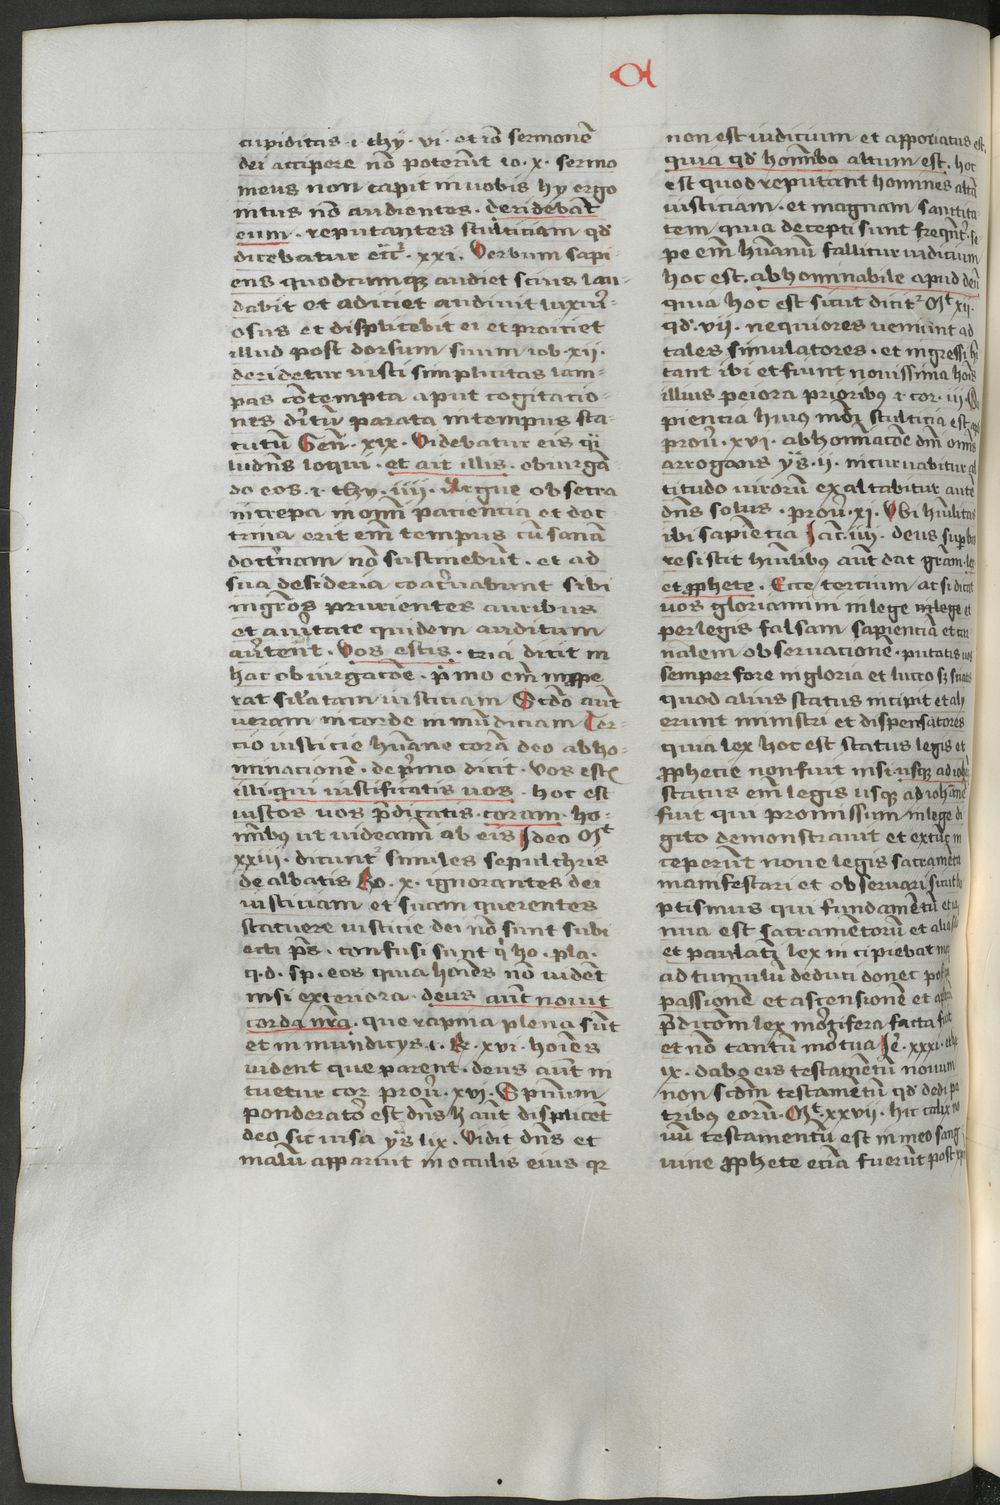 cupiditas · i · thy · vi · et io᷑ sermonē
dei accipere nō poterūt io · x · sermo
meus non capit in vobis hÿ ergo
intus nō audientes · deridebāt
eum · reputantes stulticiam qd̄
dicebatur · xxi · Verbum sapi-
ens quodcumqꝫ audiet scius lau-
dabit et adiciet audiuit luxuri-
osus et displicebit ei et proiciet
illud post dorsum suum iob · xii ·
deridetur iusti simplicitas lam-
pas cōtempta aput cogitacio-
nes diuitū parata in tempus sta-
tutū Gen̄ · xix · Videbatur eis q̄i
ludēns loqui · et ait illis · obiurgā-
do eos · i · thy · iiii · Argue obsecra
increpa in omī paciencia et doc
trina erit em̄ tempus cū sanā
doctrinam nō sustinebūt · et ad
sua desideria coaceruabunt sibi
mgr̄os prurientes auribus
et a ueritate quidem auditum
auertent · Vos estis · tria dicit in
hac obiurgacōe · p̄mo em̄ impꝓe
rat sil̄atam iusticiam Scdo aut̄
veram in corde inmūdiciam Ter-
cio iusticie hūane corā deo abho-
minacionē · de p̄mo dicit · vos est᷑
illi · qui iustificatis vos · hoc est
iustos vos p̄dicatis · coram · ho-
m̄ibꝫ ut videam̄i ab eis Ideo Mt
xxiii · dicunt᷑ similes sepulchris
dealbatis Ro · x · ignorantes dei
iusticiam et suam querentes
statuere iusticie dei nō sunt subi
ecti p̄s · confusi sunt q̄ ho · pla ·
q · d · sp̄ · eos quia hoīes nō vidēt
nisi exteriora · deus aut̄ nouit
corda vr̄a · que rapina plena sūt
et inmundicÿs · i · R · xvi · hoīes
vident que parent · deus aut̄ in
tuetur cor prou̅ · xvi · Spirituum
ponderator est dn̄s h̄ aut̄ displicet
deo sic visa ys̄ lix · Vidit dn̄s et
malū apparuit in occulis eius qꝛ
non est iudicium et apporiatus est ·
quia qd̄ hom̄ibꝫ altum est · hoc
est quod reputant homines altā
iusticiam · et magnam sanctita
tem quia decepti sunt freqn̄t᷑ · se
pe em̄ hūanū fallitur iudicium
hoc est · abhominabile apud deū
quia hoc est sicut dicit᷑ Mt xii ·
qd̄ · vii · nequiores veniunt ad
tales simulatores · et ingressi hī
tant ibi et fiunt nouissima hoīs
illius peiora prioribꝫ i cor · iii · Sa
piencia huius mūdi stulticia est apᷣ
prou̅ · xvi · abhominacōe dnī omīs
arrogans ys̄ · ii · incuruabitur al
titudo virorū exaltabitur aut̄e
dn̄s solus · prou̅ · xi · Vbi hūilitas
ibi sapiēcia Iac̄ · iiii · deus supbis
resistit hūilibꝫ aut̄ dat grām · lex
et ꝓphete · Ecce tercium ac si dicat
vos gloriamini in lege in lege et
per legis falsam sapienciā et car
nalem obseruacionē · putatis vos
semper fore in gloria et lucro sꝫ sciatis
quod alius status incipit et alÿ
erunt ministri et dispensatores
quia lex hoc est status legis et
ꝓphecie non fuit nisi · usqꝫ ad ioh̄em
status em̄ legis usqꝫ ad iohānē
fuit qui promissum in lege di
gito demonstrauit et extūc in
ceperūt noue legis sacramēta
manifestari et obseruari sicut ba
ptismus qui fundamētū et ia
nua est sacramētorū et alia
et paulatī lex incipiebat
ad tumulū deduci donec post
passionē et ascensionē et
p̄dicacōm lex mortifera facta fuit
et nō tantū mortua Ier̄ · xxxi ·
ix · dabo eis testamētū nouum
non scdm̄ testamētū qd̄ dedi pa
tribꝫ eorū · Mt · xxvii · hic calix no
uū testamētū est in meo sang
uine ꝓphete ecia fuerūt post